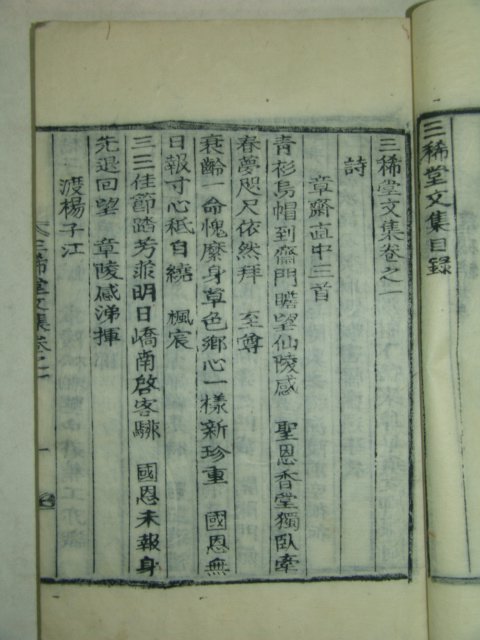 三稀堂文集目錄
三稀堂文集卷之一
詩
章齋直中三首
青衫烏帽到齋門瞻望仙陵感 聖恩香堂獨臥牽
春夢咫尺依然拜 至尊
衰齡一命愧縻身草色鄉心一樣新珍重 國恩無
日報寸心秪自繞 楓宸
三三佳節踏芳菲明日嶠南啓客騑 國恩未報身
先退回望 章陵感涕揮
渡楊子江
三稀堂文集卷之一 一